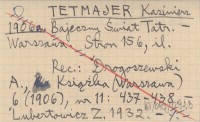 TETMAJER Kazimierz
1906a. Bajeczny Świat Tatr. –
Warszawa. Stron 156, il.
Rec: Drogoszewski
A., Książka (Warszawa)
6 (1906), no 11: 437-438. –
Lubertowicz Z., 1932. –